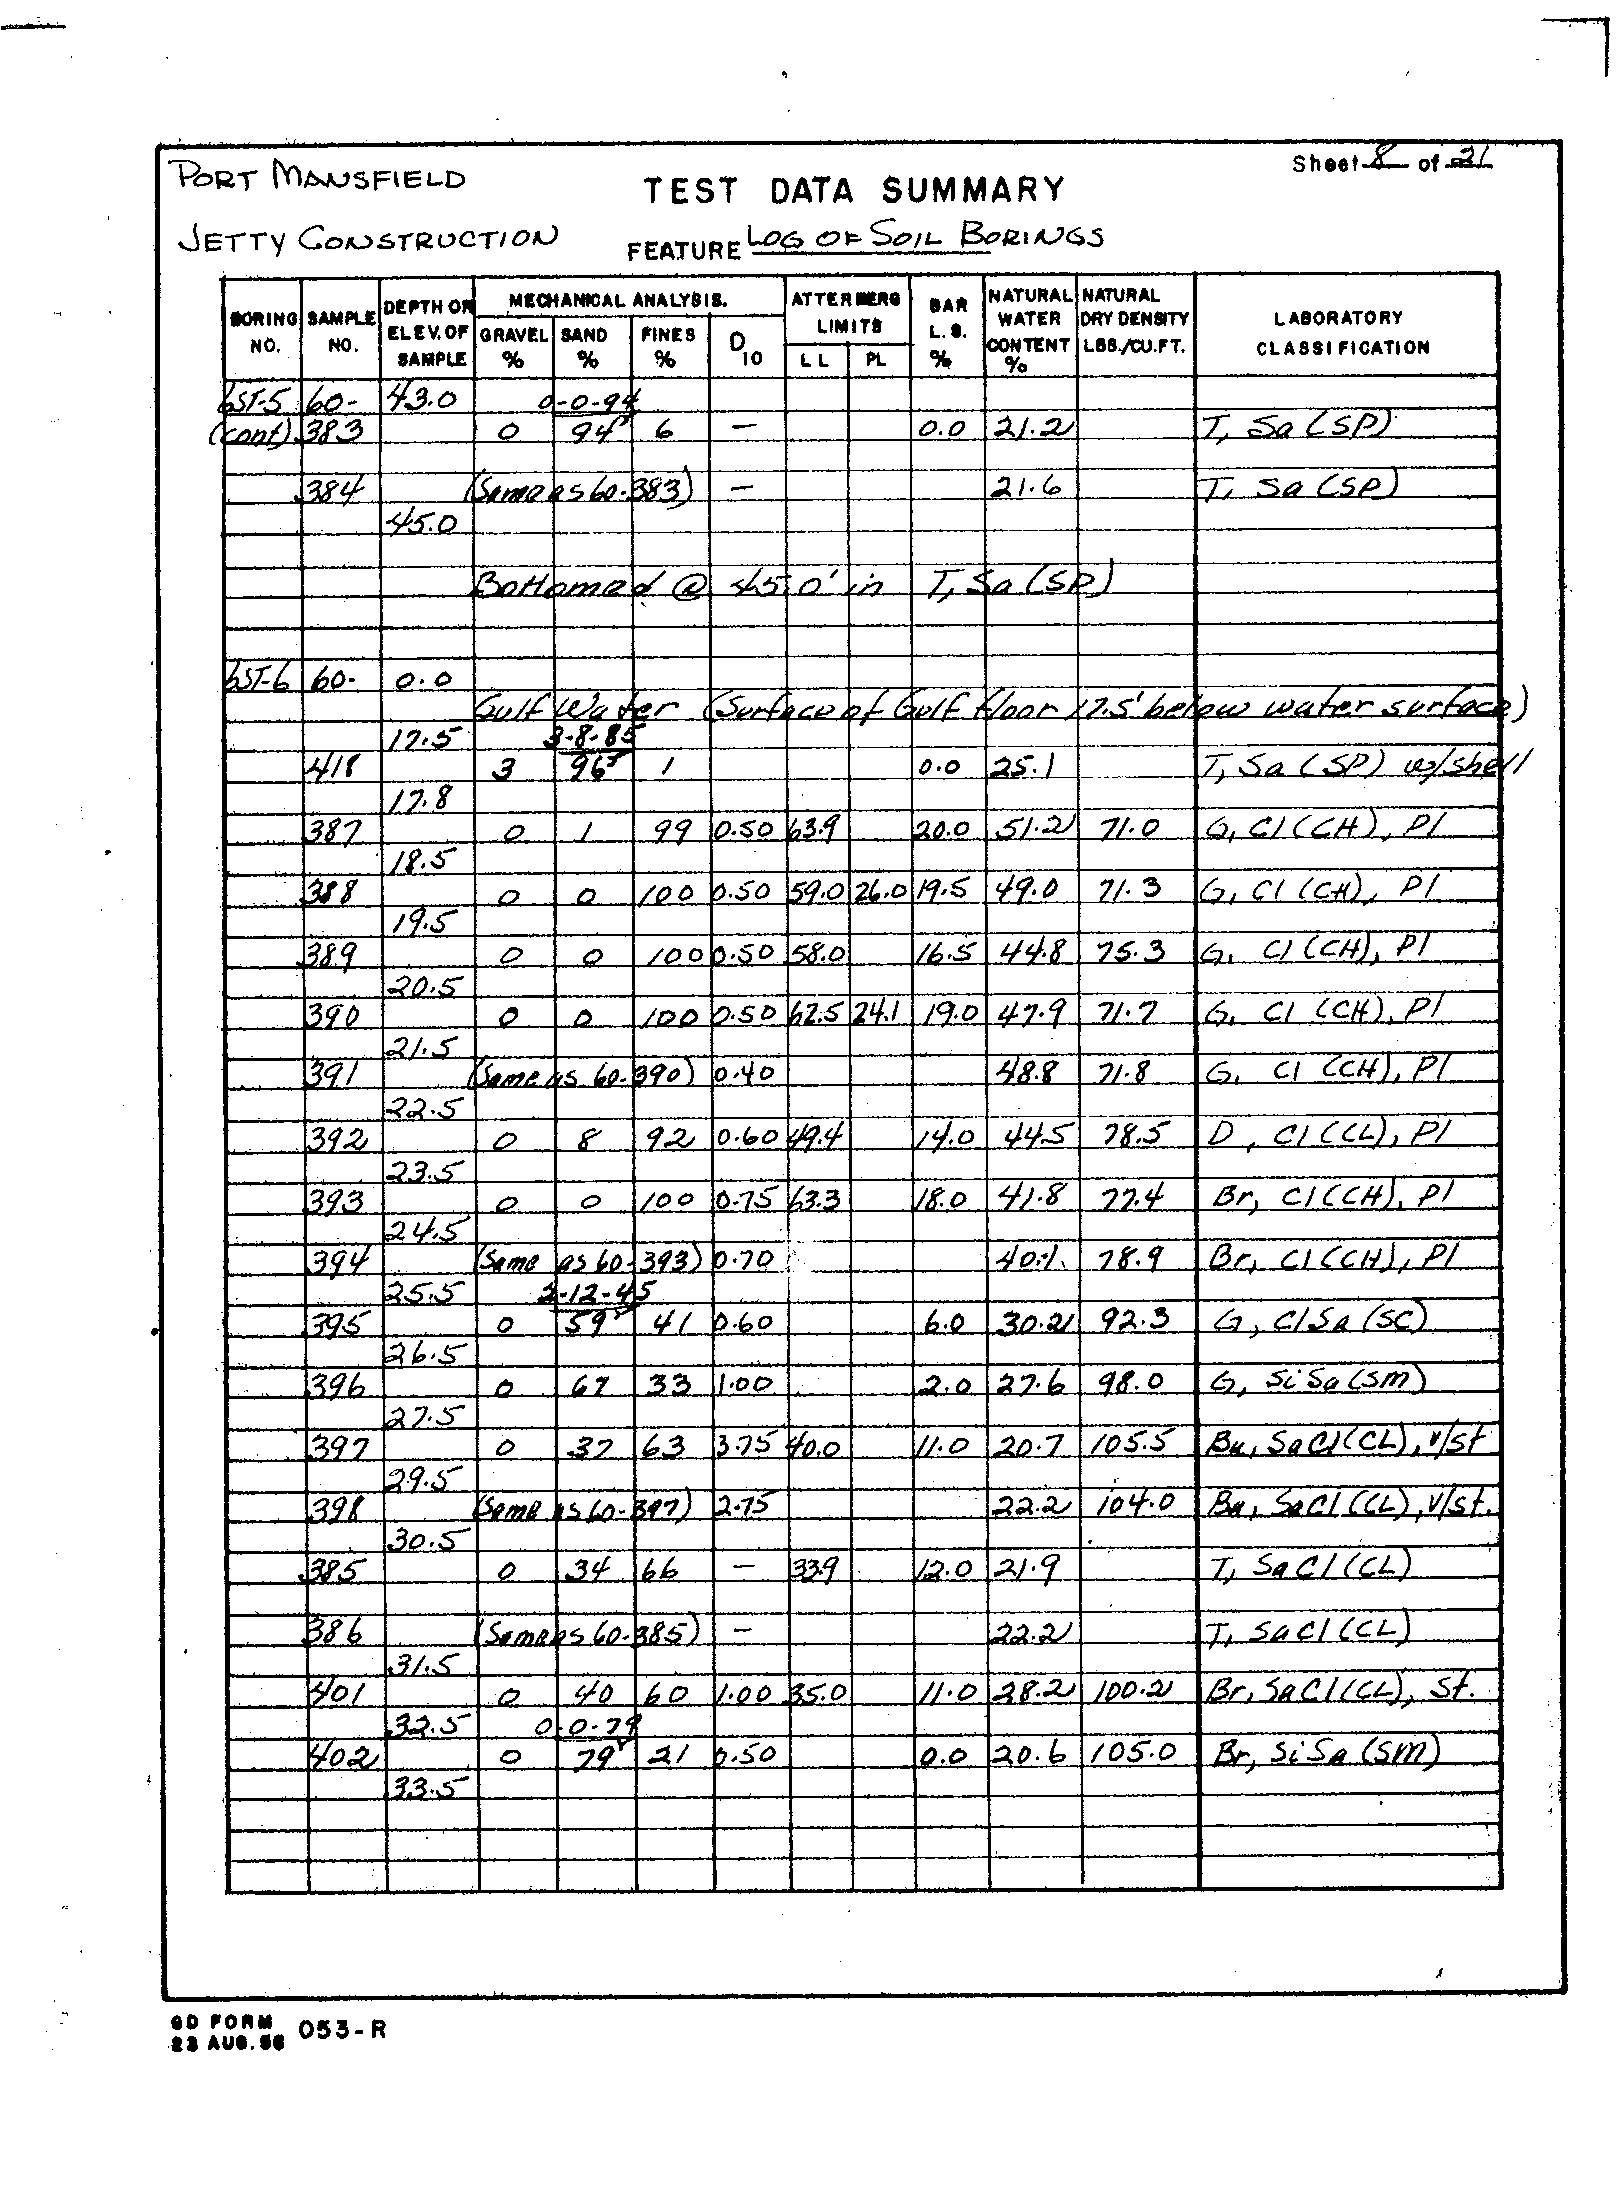 PORT MANSFIELD
Sheet 8 of 31
TEST DATA SUMMARY
JETTY CONSTRUCTION
FEATURE LOG OF SOIL BORINGS
BORING NO. SAMPLE NO. DEPTH OR ELEV. OF SAMPLE MECHANICAL ANALYSIS. GRAVEL % SAND % FINES % D10 ATTERBERG LIMITS LL PL BAR L.S. % NATURAL WATER CONTENT % NATURAL DRY DENSITY LBS./CU.FT. LABORATORY CLASSIFICATION
6ST-5 60- 43.0 0-0-94
(cont) 383 0 94 6 — 0.0 21.2 T, Sa (SP)
384 (Same as 60-383) — 21.6 T, Sa (SP)
45.0
Bottomed @ 45.0' in T, Sa (SP)
6ST-6 60- 0.0
Gulf Water (Surface of Gulf floor 17.5' below water surface)
17.5 3-8-85
418 3 96 1 0.0 25.1 T, Sa (SP) w/shell
17.8
387 0 1 99 0.50 63.9 20.0 51.2 71.0 G, Cl (CH), Pl
18.5
388 0 0 100 0.50 59.0 26.0 19.5 49.0 71.3 G, Cl (CH), Pl
19.5
389 0 0 100 0.50 58.0 16.5 44.8 75.3 G, Cl (CH), Pl
20.5
390 0 0 100 0.50 62.5 24.1 19.0 47.9 71.7 G, Cl (CH), Pl
21.5
391 (Same as 60-390) 0.40 48.8 71.8 G, Cl (CH), Pl
22.5
392 0 8 92 0.60 49.4 14.0 44.5 78.5 D, Cl (CL), Pl
23.5
393 0 0 100 0.75 63.3 18.0 41.8 77.4 Br, Cl (CH), Pl
24.5
394 (Same as 60-393) 0.70 40.1 78.9 Br, Cl (CH), Pl
25.5 2-12-45
395 0 59 41 0.60 6.0 30.2 92.3 G, ClSa (SC)
26.5
396 0 67 33 1.00 2.0 27.6 98.0 G, SiSa (SM)
27.5
397 0 37 63 3.75 40.0 11.0 20.7 105.5 Bu, SaCl (CL), v/st
29.5
398 (Same as 60-397) 2.75 22.2 104.0 Bu, SaCl (CL), v/st.
30.5
385 0 34 66 — 33.9 12.0 21.9 T, SaCl (CL)
386 (Same as 60-385) — 22.2 T, SaCl (CL)
31.5
401 0 40 60 1.00 35.0 11.0 28.2 100.2 Br, SaCl (CL), St.
32.5 0-0-79
402 0 79 21 0.50 0.0 20.6 105.0 Br, SiSa (SM)
33.5
GD FORM 053-R
23 AUG. 56